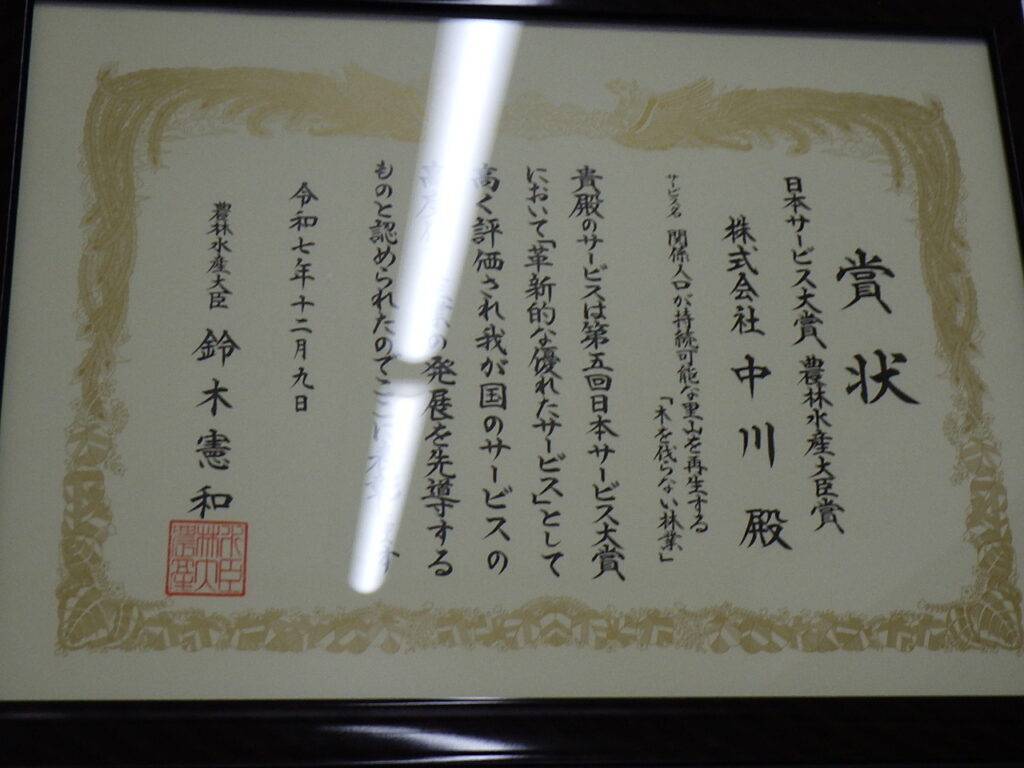 賞状
日本サービス大賞 農林水産大臣賞
株式会社 中川 殿
サービス名 関係人口が持続可能な里山を再生する
「木を伐らない林業」
貴殿のサービスは第五回日本サービス大賞
において「革新的な優れたサービス」として
高く評価され我が国のサービスの
の発展を先導する
ものと認められたのでここに
令和七年十二月九日
農林水産大臣 鈴木憲和